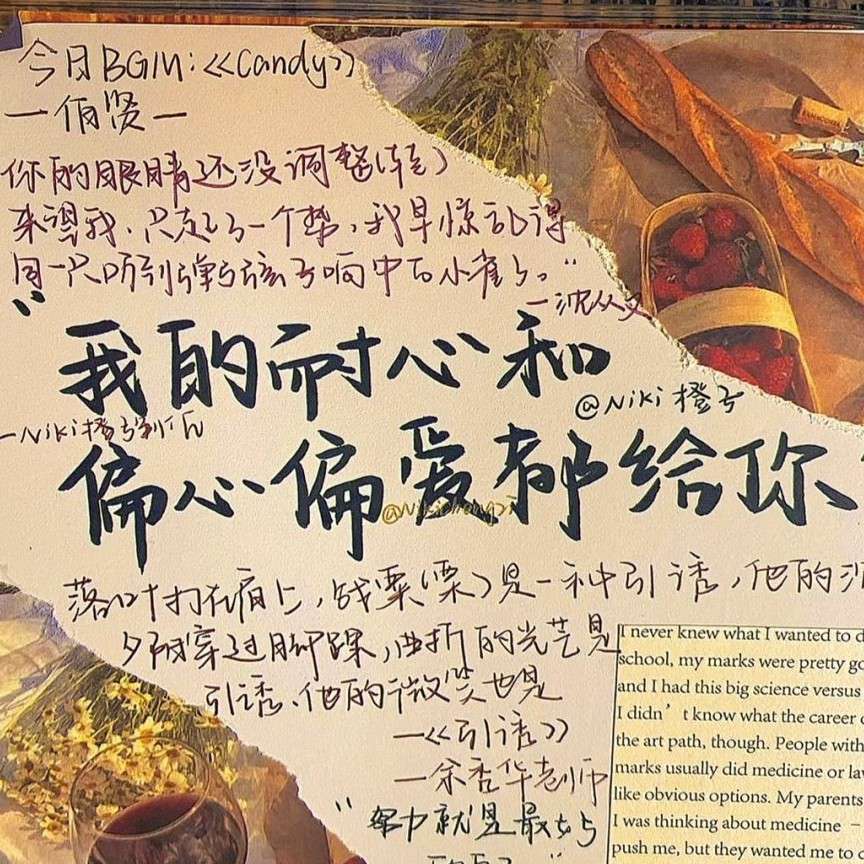 今日BGM:《Candy》
—伯贤—
你的眼睛还没调整(转)
来望我,只起了一个势,我早惊乱得
同一只听到弹弓弦子响中的小雀了。”
—沈从文
“我的耐心和
@Niki橙子
—Niki橙子制作
偏心偏爱都给你
@Nikichengzi
落叶打在肩上,战粟(栗)是一种引诱,他的
夕阳穿过脚踝,曲折的光芒是
引诱、他的微笑也是
—《引诱》
—余秀华老师
“努力就是最大
I never knew what I wanted to d
school, my marks were pretty go
and I had this big science versus
I didn't know what the career
the art path, though. People with
marks usually did medicine or la
like obvious options. My parents
I was thinking about medicine –
push me, but they wanted me to